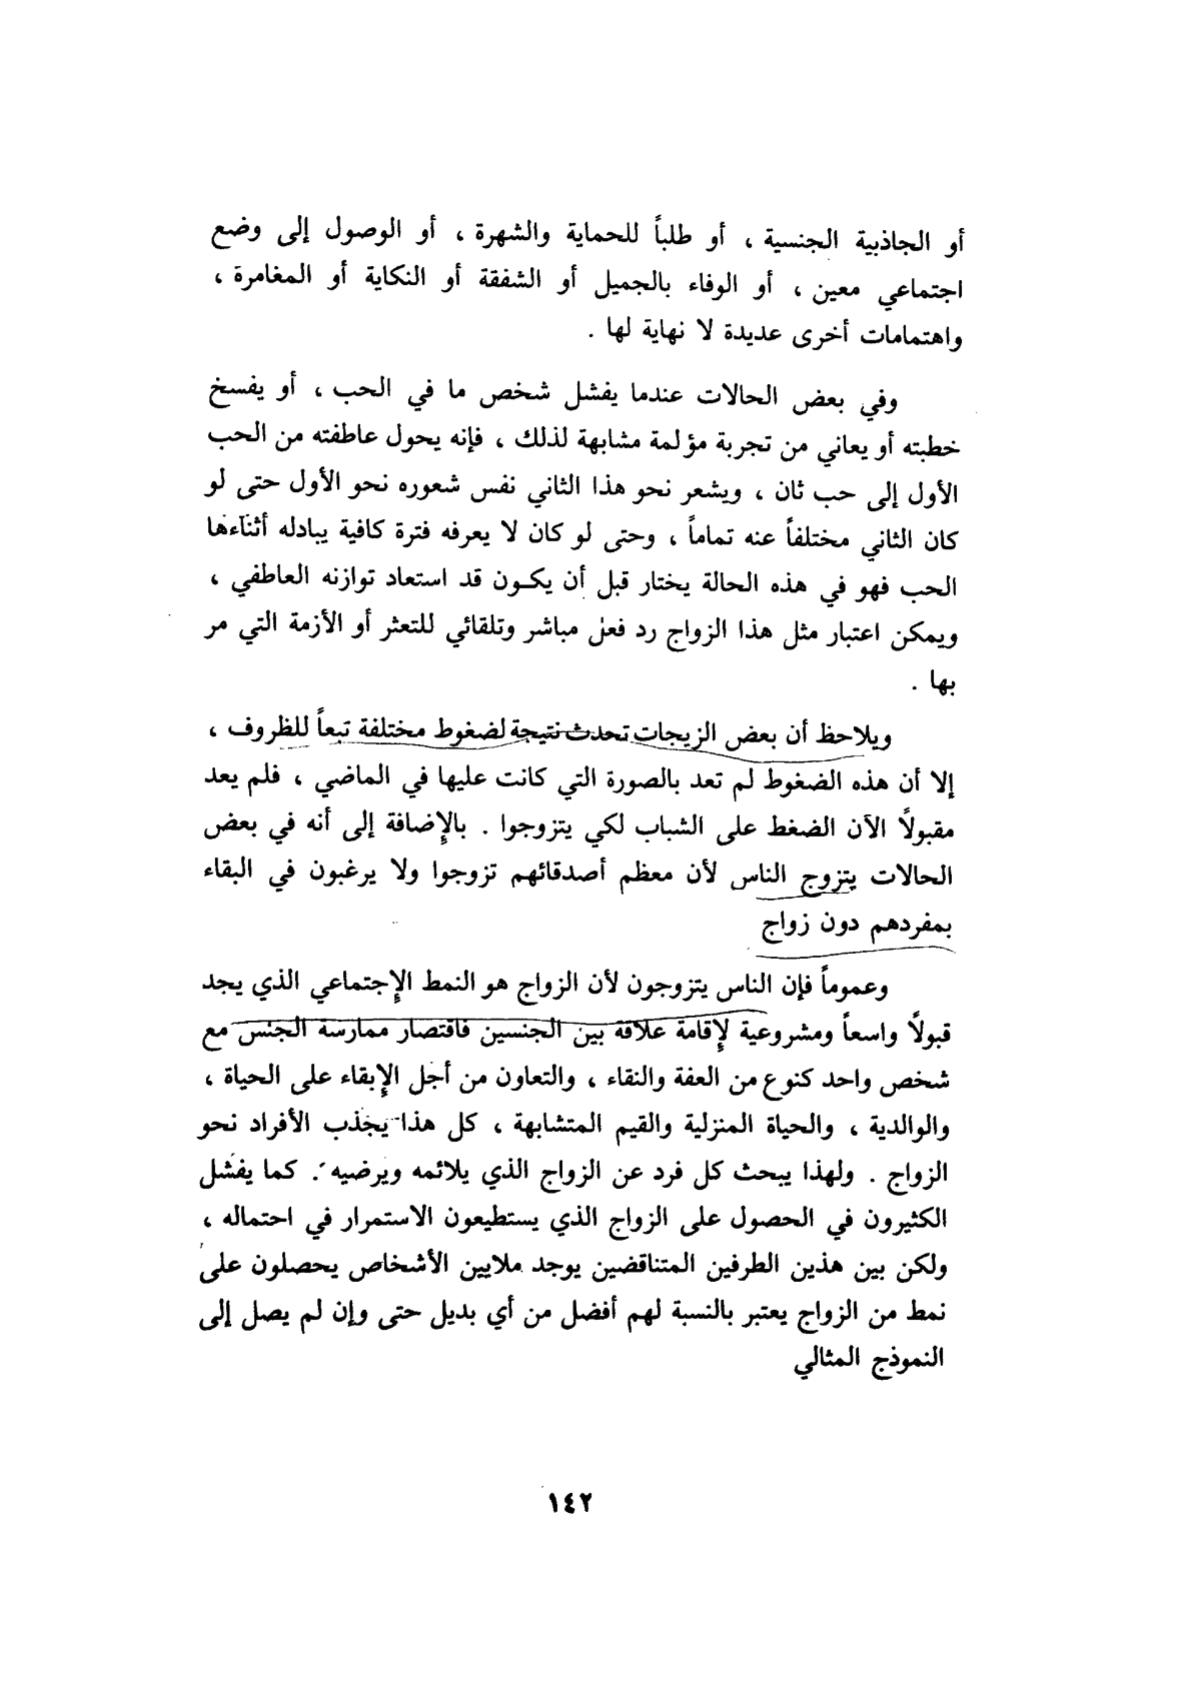 أو الجاذبية الجنسية ، أو طلباً للحماية والشهرة ، أو الوصول إلى وضع
اجتماعي معين ، أو الوفاء بالجميل أو الشفقة أو النكاية أو المغامرة ،
واهتمامات أخرى عديدة لا نهاية لها .
وفي بعض الحالات عندما يفشل شخص ما في الحب ، أو يفسخ
خطبته أو يعاني من تجربة مؤلمة مشابهة لذلك ، فإنه يحول عاطفته من الحب
الأول إلى حب ثان ، ويشعر نحو هذا الثاني نفس شعوره نحو الأول حتى لو
كان الثاني مختلفاً عنه تماماً ، وحتى لو كان لا يعرفه فترة كافية يبادله أثناءها
الحب فهو في هذه الحالة يختار قبل أن يكون قد استعاد توازنه العاطفي ،
ويمكن اعتبار مثل هذا الزواج رد فعل مباشر وتلقائي للتعثر أو الأزمة التي مر
بها .
ويلاحظ أن بعض الزيجات تحدث نتيجة لضغوط مختلفة تبعاً للظروف ،
إلا أن هذه الضغوط لم تعد بالصورة التي كانت عليها في الماضي ، فلم يعد
مقبولاً الآن الضغط على الشباب لكي يتزوجوا . بالإضافة إلى أنه في بعض
الحالات يتزوج الناس لأن معظم أصدقائهم تزوجوا ولا يرغبون في البقاء
بمفردهم دون زواج
وعموماً فإن الناس يتزوجون لأن الزواج هو النمط الإجتماعي الذي يجد
قبولاً واسعاً ومشروعية لإقامة علاقة بين الجنسين فاقتصار ممارسة الجنس مع
شخص واحد كنوع من العفة والنقاء ، والتعاون من أجل الإبقاء على الحياة ،
والوالدية ، والحياة المنزلية والقيم المتشابهة ، كل هذا يجذب الأفراد نحو
الزواج . ولهذا يبحث كل فرد عن الزواج الذي يلائمه ويرضيه . كما يفشل
الكثيرون في الحصول على الزواج الذي يستطيعون الاستمرار في احتماله ،
ولكن بين هذين الطرفين المتناقضين يوجد ملايين الأشخاص يحصلون على
نمط من الزواج يعتبر بالنسبة لهم أفضل من أي بديل حتى وإن لم يصل إلى
النموذج المثالي
١٤٢